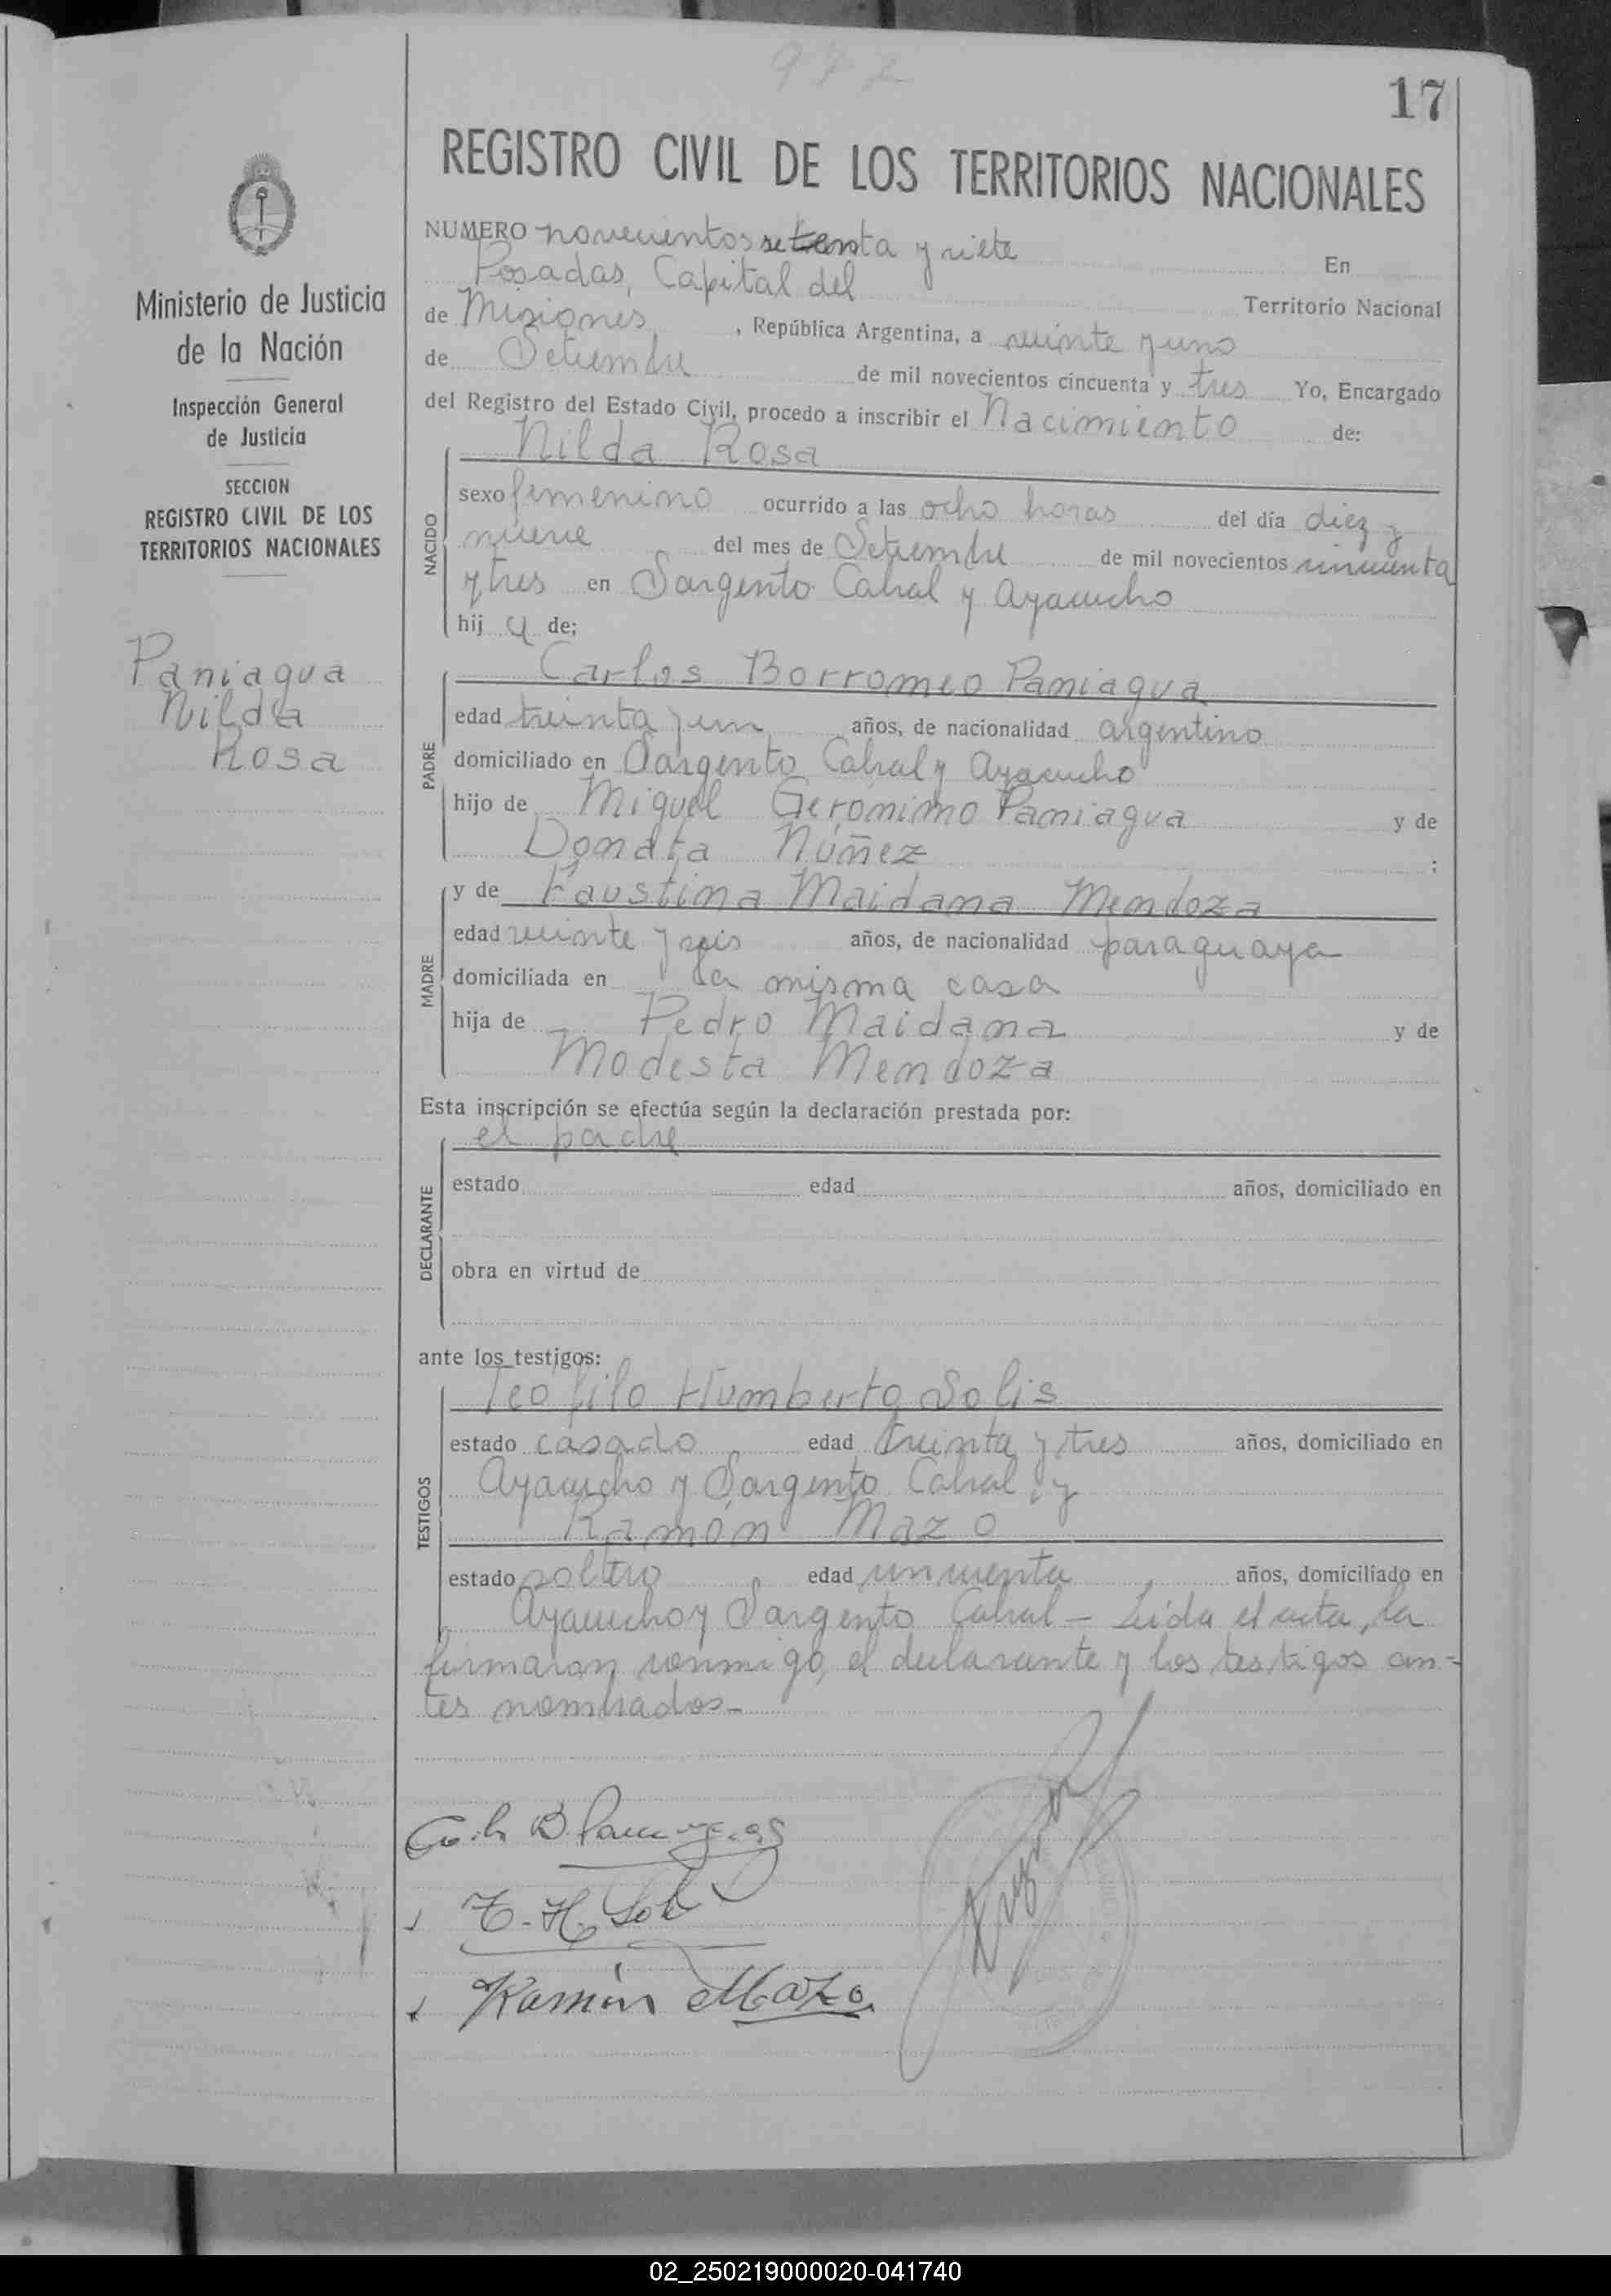 977
17
REGISTRO CIVIL DE LOS TERRITORIOS NACIONALES
NUMERO novecientos setenta y siete En
Posadas, Capital del Territorio Nacional
de Misiones, República Argentina, a veinte y uno
de Setiembre de mil novecientos cincuenta y tres Yo, Encargado
del Registro del Estado Civil, procedo a inscribir el Nacimiento de:
Nilda Rosa
NACIDO
sexo femenino ocurrido a las ocho horas del día diez y
nueve del mes de Setiembre de mil novecientos cincuenta
y tres en Sargento Cabral y Ayacucho
hij a de;
Carlos Borromeo Paniagua
PADRE
edad treinta y un años, de nacionalidad argentino
domiciliado en Sargento Cabral y Ayacucho
hijo de Miguel Gerónimo Paniagua y de
Donata Núñez ;
y de Faustina Maidana Mendoza
MADRE
edad veinte y seis años, de nacionalidad paraguaya
domiciliada en la misma casa
hija de Pedro Maidana y de
Modesta Mendoza
Esta inscripción se efectúa según la declaración prestada por:
el padre
DECLARANTE
estado edad años, domiciliado en
obra en virtud de
ante los testigos:
Teofilo Humberto Solis
TESTIGOS
estado casado edad treinta y tres años, domiciliado en
Ayacucho y Sargento Cabral, y
Ramón Mazo
estado soltero edad cincuenta años, domiciliado en
Ayacucho y Sargento Cabral - Leida el acta, la
firmaron conmigo, el declarante y los testigos an-
tes nombrados-
T. H. Solis
Ramón Mazo
Ministerio de Justicia
de la Nación
Inspección General
de Justicia
SECCION
REGISTRO CIVIL DE LOS
TERRITORIOS NACIONALES
Paniagua
Nilda
Rosa
02_250219000020-041740